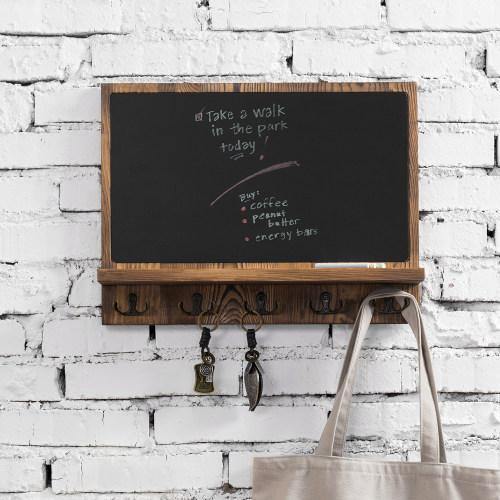 Take a walk
in the park
today!
Buy:
coffee
peanut
butter
energy bars